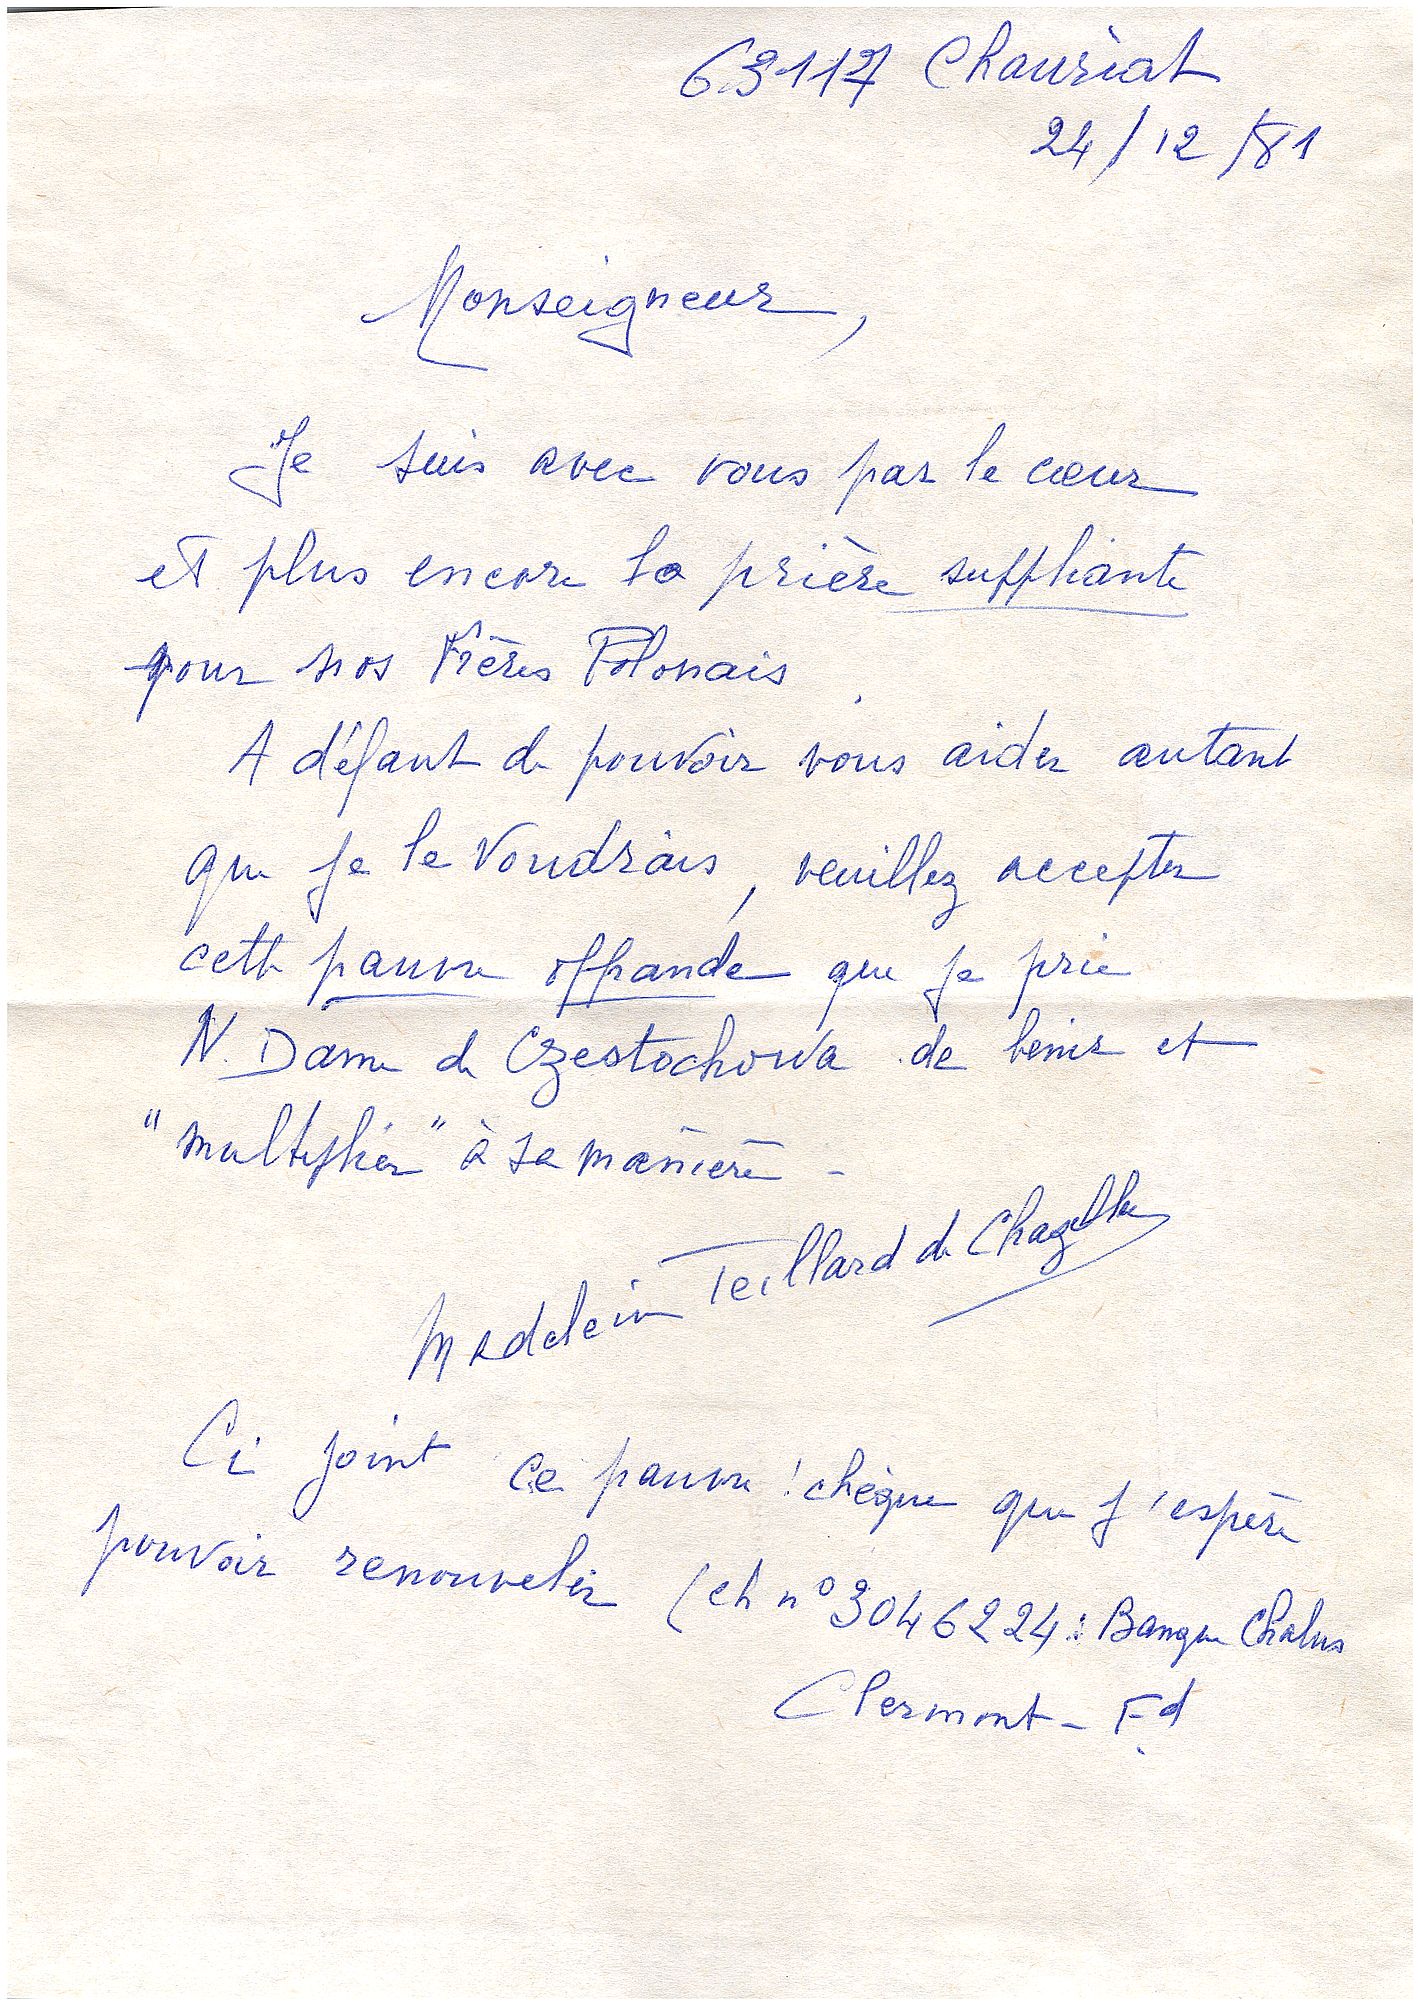 63117 Chauriat
24/12/81
Monseigneur,
Je suis avec vous par le cœur
et plus encore la prière suppliante
pour nos Frères Polonais.
A défaut de pouvoir vous aider autant
que je le voudrais, veuillez accepter
cette pauvre offrande que je prie
N. Dame de Czestochowa de bénir et
"multiplier" à sa manière -
Madeleine Teillard de Chazelles
Ci joint ce pauvre ! chèque que j'espère
pouvoir renouveler (ch n° 3046224 : Banque Chalus
Clermont - Fd